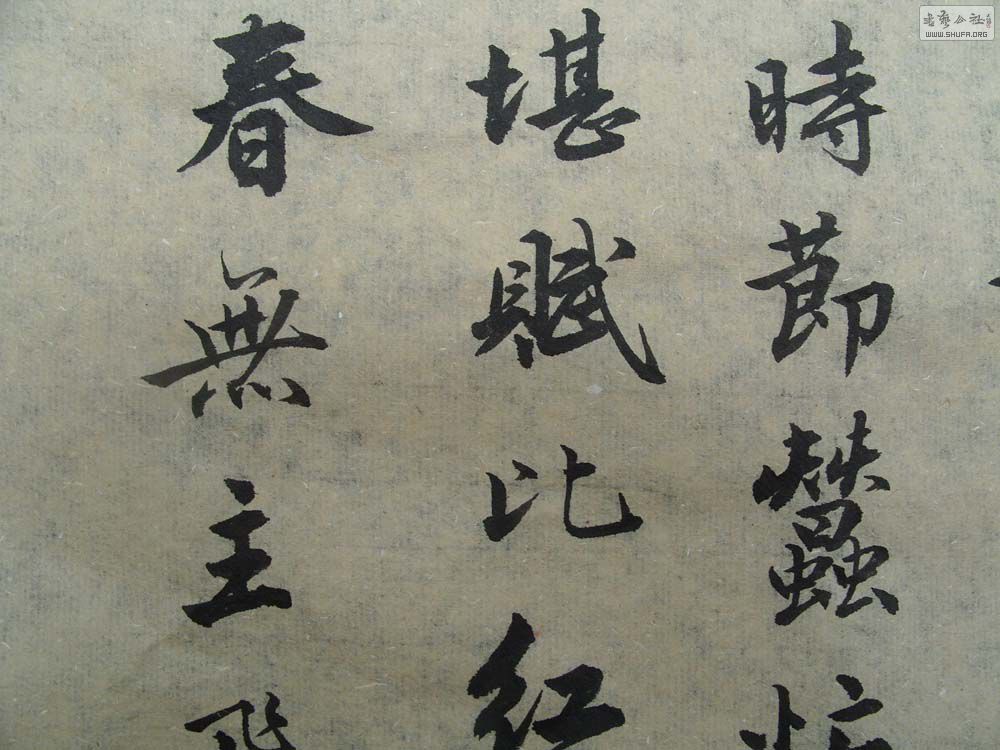 時節蠶忙
堪賦比紅
春無主飛
書藝公社
WWW.SHUFA.ORG